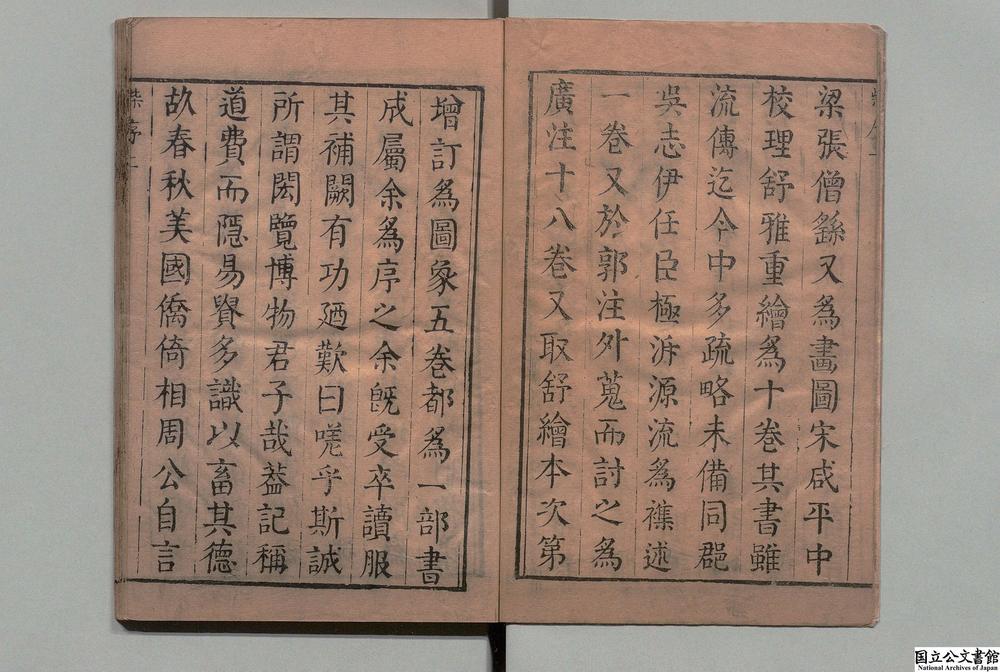 梁張僧繇又為畫圖宋咸平中
校理舒雅重繪為十卷其書雖
流傳迄今中多疏略未備同郡
吳志伊任臣極泝源流為襍述
一卷又於郭注外蒐而討之為
廣注十八卷又取舒繪本次第
增訂為圖象五卷都為一部書
成屬余為序之余旣受卒讀服
其補闕有功廼歎曰嗟乎斯誠
所謂閎覽博物君子哉葢記稱
道費而隱易貿多識以畜其德
故春秋美國僑倚相周公自言
柴序二
国立公文書館
National Archives of Japan